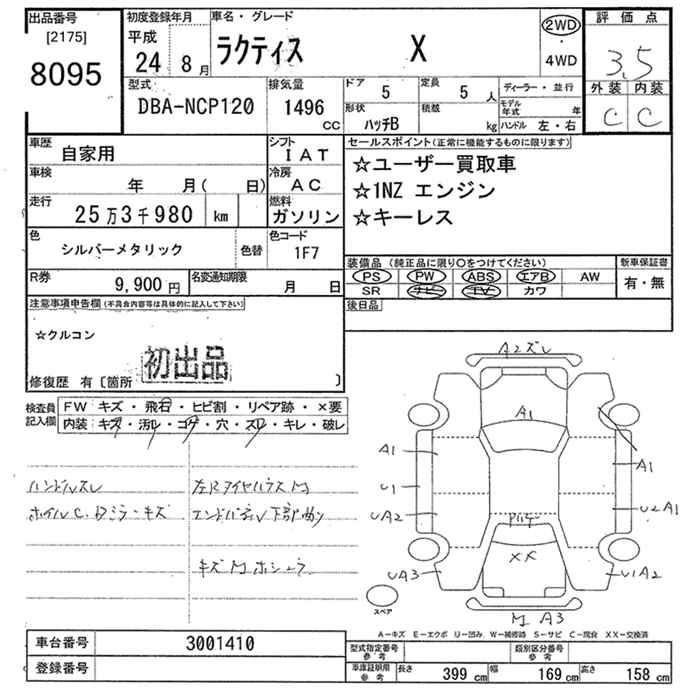 出品番号
[2175]
8095
初度登録年月
平成
24 8月
車名・グレード
ラクティス X
2WD
・
4WD
評価点
3.5
外装 内装
C C
型式
DBA-NCP120
排気量
1496
CC
ドア 5
定員 5 人
形状 ハッチB
積載 kg
ディーラー・並行
モデル年式 年
ハンドル 左・右
車歴 自家用
シフト IAT
車検 年 月( 日)
冷房 AC
走行 25万3千980 km
燃料 ガソリン
色 シルバーメタリック 色替
色コード 1F7
R券 9,900円
名変通知期限 月 日
セールスポイント(正常に機能するものに限ります)
☆ユーザー買取車
☆1NZ エンジン
☆キーレス
装備品(純正品に限り〇をつけてください)
PS PW ABS エアB AW
SR ナビ TV カワ
新車保証書
有・無
後日品
注意事項申告欄(不具合内容等は具体的に記入して下さい)
☆クルコン
初出品
修復歴 有〔箇所 〕
検査員記入欄
FW キズ・飛石・ヒビ割・リペア跡・×要
内装 キズ・汚レ・コゲ・穴・スレ・キレ・破レ
ハンドルスレ
ホイルC、Bミラーキズ
エンドパネル下部曲り
A2ズレ
A1
A1
A1
U1
UA2
U2A1
UA3
U1A2
××
A3
スペア
A-キズ E-エクボ U-凹み W-補修跡 S-サビ C-腐食 XX-交換済
車台番号 3001410
登録番号
型式指定番号 参考
類別区分番号 参考
車庫証明用 参考
長さ 399cm 幅 169cm 高さ 158cm